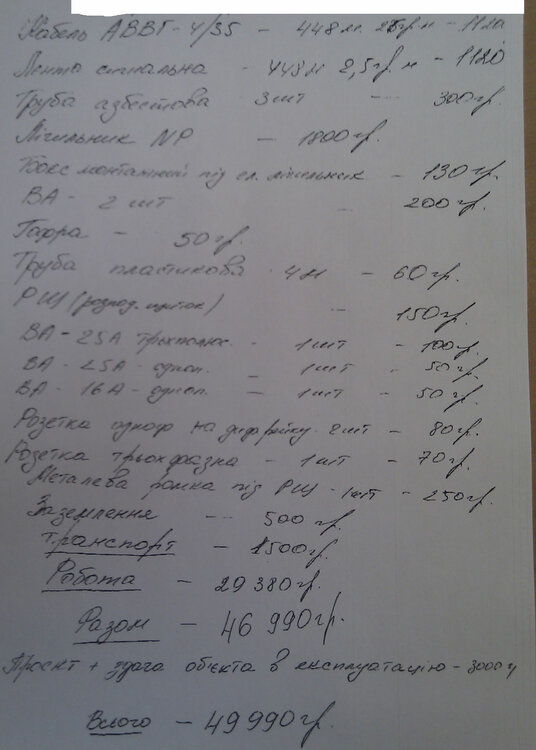 Кабель АВВГ - 4/35 - 448 м. 25гр.м - 11200
Лента сигнальна - 448м 2,5гр.м - 1120
Труба азбестова 3 шт - 300гр.
Лічильник NP - 1800гр.
Бокс монтажний під ел. лічильник - 130гр.
ВА - 2 шт - 200гр.
Гофра - 50гр.
Труба пластикова 4м - 60гр.
РЩ (розпод. щиток) - 150гр.
ВА - 25А трьхполюс. - 1 шт - 100гр.
ВА - 25А - однопол. - 1 шт - 50гр.
ВА - 16А - однопол. - 1 шт - 50гр.
Розетка одноф на дифрейку - 2 шт - 80гр.
Розетка трьохфазна - 1 шт - 70гр.
Металева рамка під РЩ - 1шт - 250гр.
Заземлення - 500гр.
Транспорт - 1500гр.
Робота - 29 380гр.
Разом - 46 990гр.
Проєкт + здача обієкта в експлуатацію - 3000г
Всього - 49 990гр.